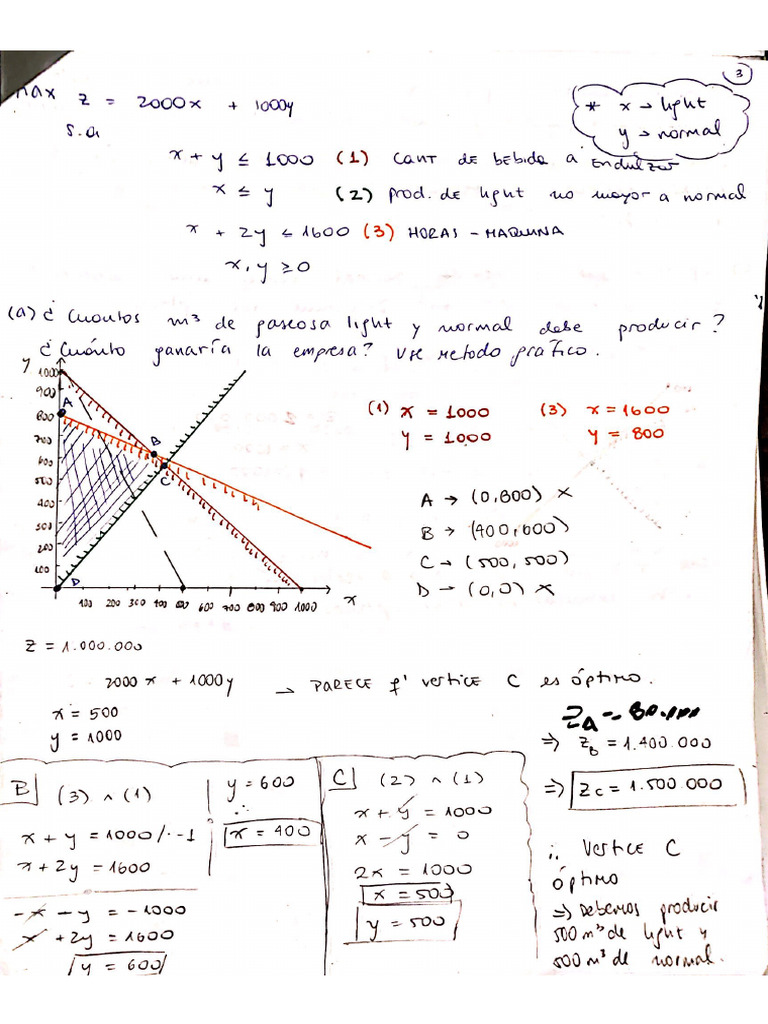 3
max z = 2000x + 1000y
* x → light
y → normal
s.a
x + y ≤ 1000 (1) CANT DE BEBIDA A ENDULZAR
x ≤ y (2) prod. de light no mayor a normal
x + 2y ≤ 1600 (3) HORAS - MAQUINA
x, y ≥ 0
(a) ¿Cuantos m³ de gaseosa light y normal debe producir?
¿Cuánto ganaría la empresa? Use metodo gráfico.
y
1000
900
800
700
600
500
400
300
200
100
A
B
C
D
100 200 300 400 500 600 700 800 900 1000
x
(1) x = 1000 (3) x = 1600
y = 1000 y = 800
A → (0,800) X
B → (400,600)
C → (500,500)
D → (0,0) X
Z = 1.000.000
2000x + 1000y → PARECE q' vertice C es óptimo.
x = 500
y = 1000
⇒ Z_B = 1.400.000
⇒ Z_C = 1.500.000
∴ Vertice C
óptimo
⇒ Debemos producir
500 m³ de light y
500 m³ de normal.
B (3) ∧ (1)
x + y = 1000 /·-1
x + 2y = 1600
-x - y = -1000
x + 2y = 1600
y = 600
y = 600
∴
x = 400
C (2) ∧ (1)
x + y = 1000
x - y = 0
2x = 1000
x = 500
y = 500